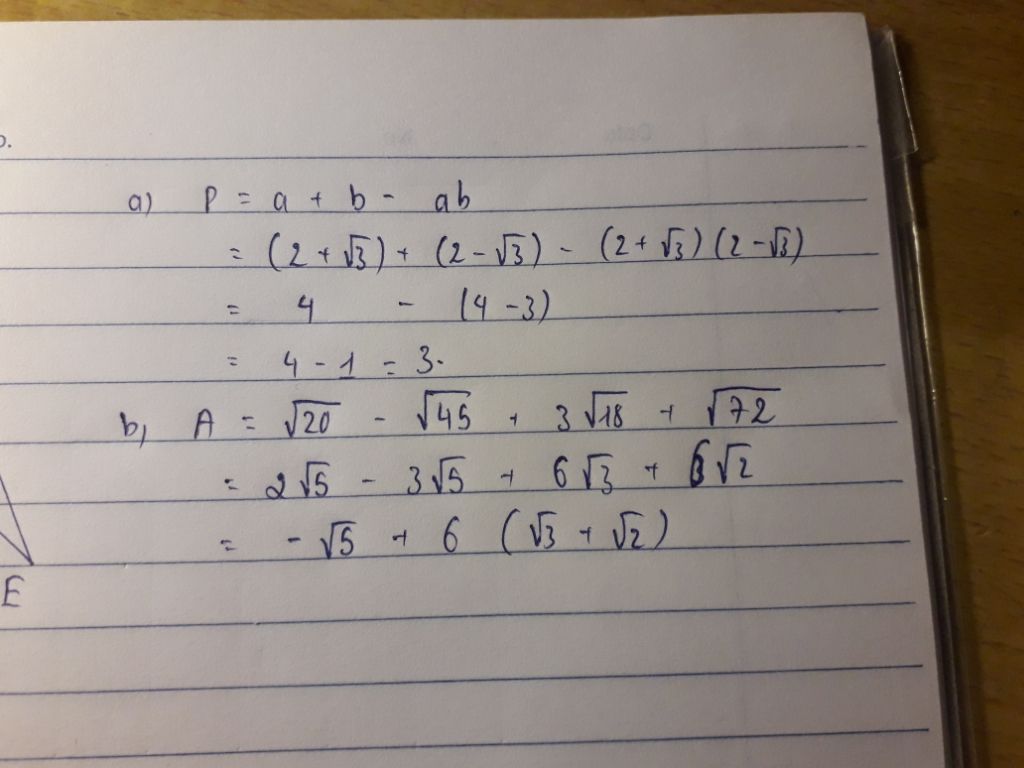 a) P = a + b - ab
= (2 + √3) + (2 - √3) - (2 + √3)(2 - √3)
= 4 - (4 - 3)
= 4 - 1 = 3.
b, A = √20 - √45 + 3√18 + √72
= 2√5 - 3√5 + 6√3 + 6√2
= -√5 + 6 (√3 + √2)
E